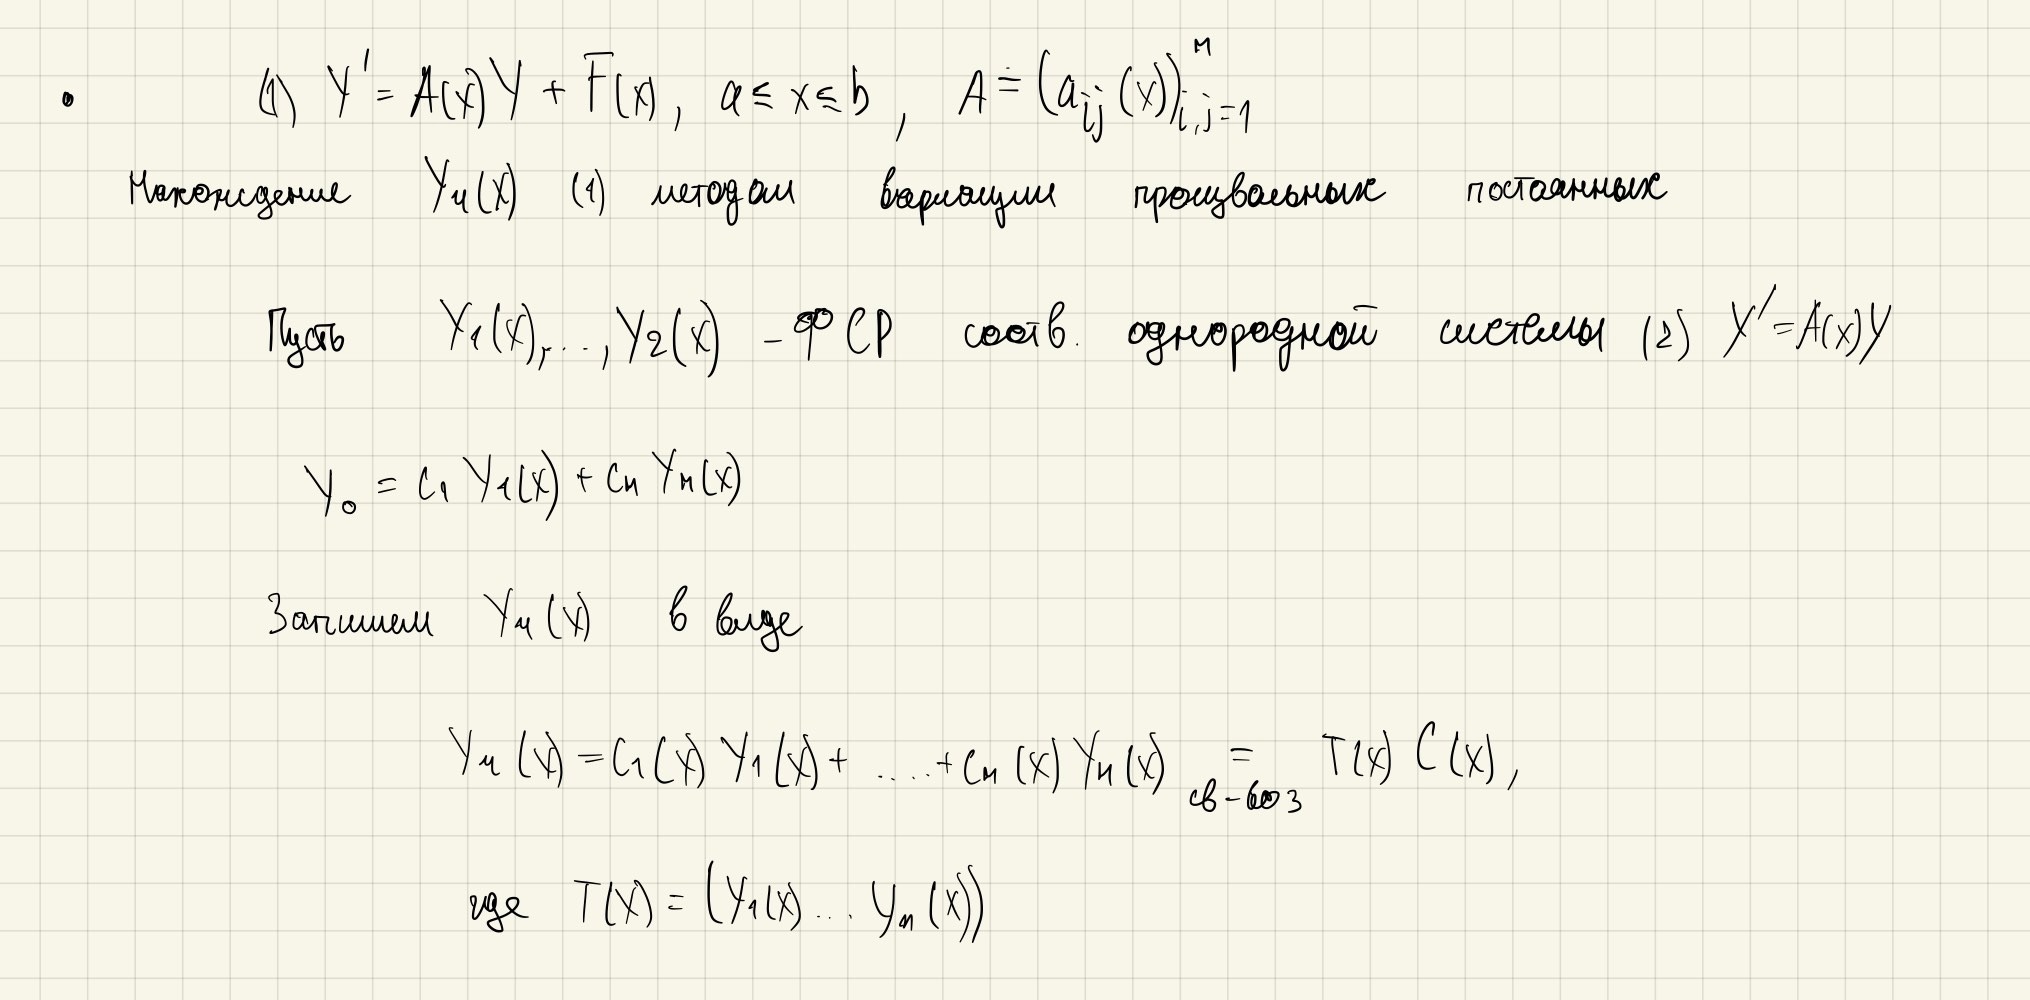 • (1) Y' = A(x)Y + F(x), a ≤ x ≤ b, A = (a_ij(x))^n_i,j=1
Нахождение Yч(x) (1) методом вариации произвольных постоянных
Пусть Y1(x),...,Y2(x) - ФСР соотв. однородной системы (2) Y' = A(x)Y
Y0 = C1 Y1(x) + Cn Yn(x)
Запишем Yч(x) в виде
Yч(x) = C1(x) Y1(x) + ....+ Cn(x) Yn(x) = T(x) C(x),
св-во 3
где T(x) = (Y1(x)... Yn(x))